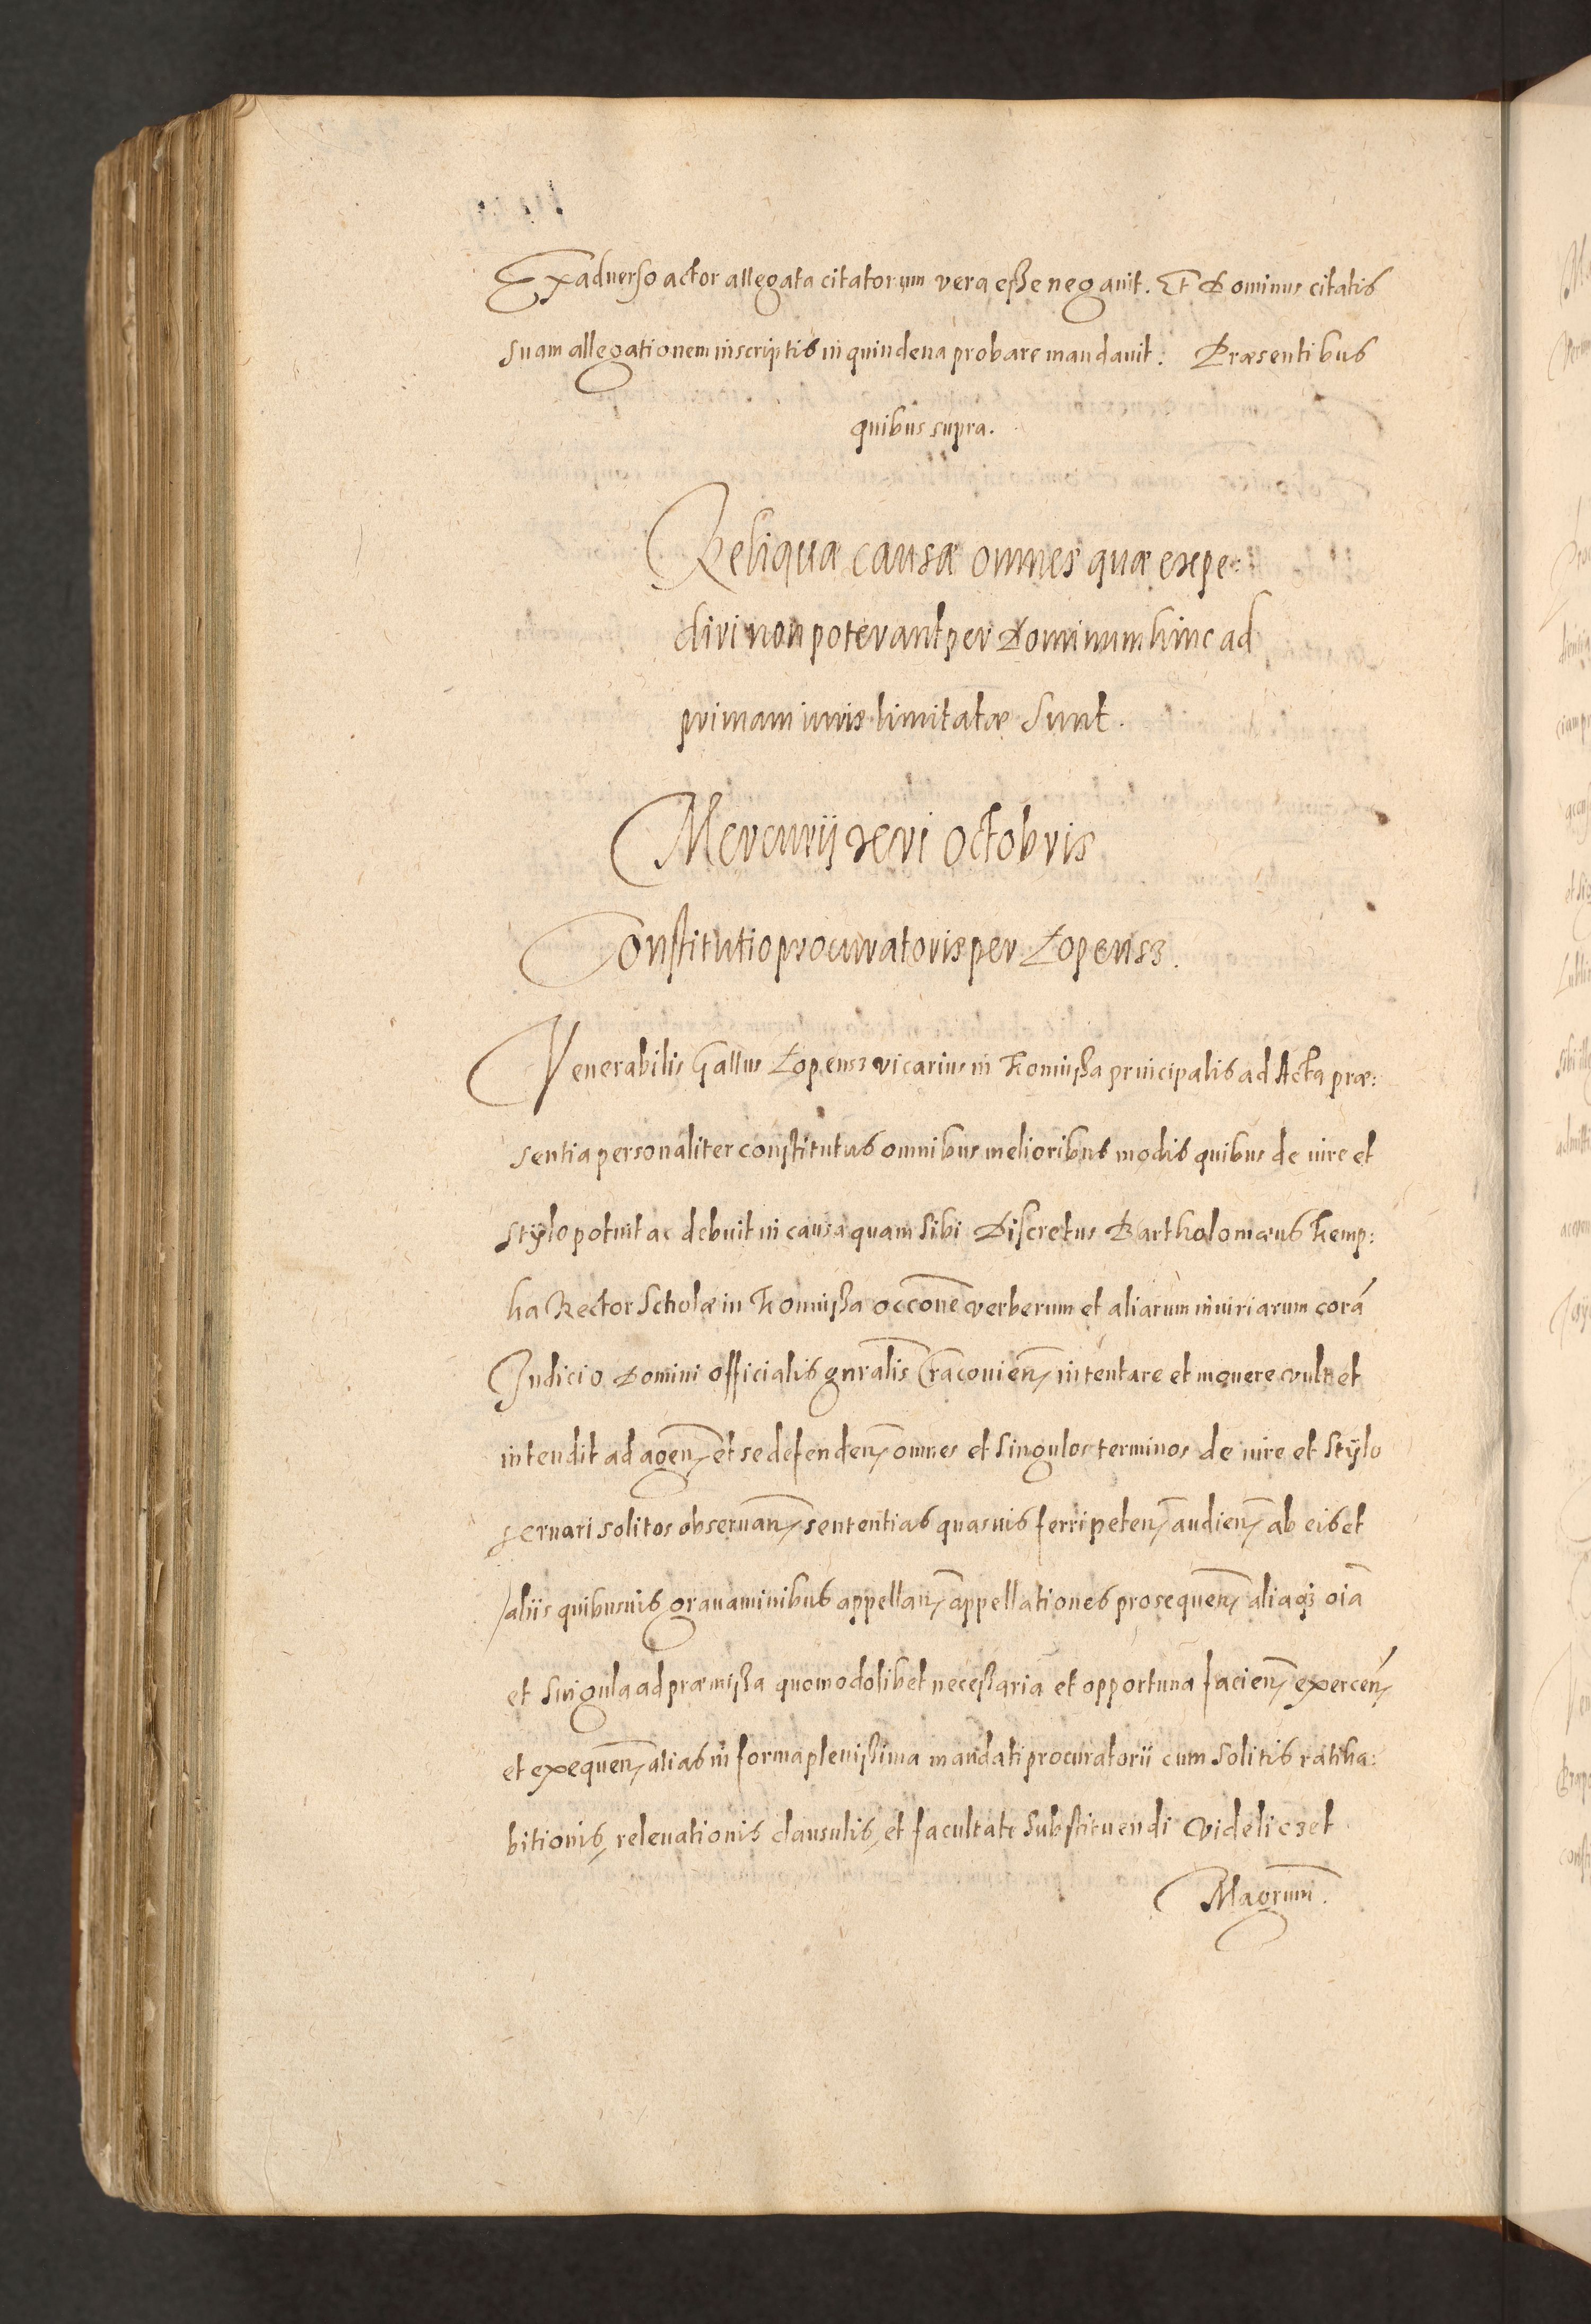 Ex adverso actor allegata citatorum vera eße negauit. Et Dominus citatis
suam allegationem in scriptis in quindena probare mandauit. Præsentibus
quibus supra.
Reliquæ causæ omnes quæ expe:
diri non poterant per Dominum hinc ad
primam iuris limitatæ sunt.
Mercurij xvi octobris
Constitutio procuratoris per Lopensz.
Venerabilis Gallus Lopensz vicarius in Koniußa principalis ad Acta præ:
sentia personaliter constitutus omnibus melioribus modis quibus de iure et
stÿlo potuit ac debuit in causa quam sibi Discretus Bartholomæus Kemp:
ha Rector Scholæ in Koniußa occone verberum et aliarum iniuriarum corá
Judicio Domini officialis gnralis Cracouien intentare et mouere vult et
intendit ad agen et se defenden omnes et singulos terminos de iure et stÿlo
seruari solitos obseruan sententias quasuis ferri peten audien ab eis et
aliis quibusuis grauaminibus appellan appellationes prosequen aliaqз oia
et singula ad præmißa quomodolibet neceßaria et opportuna facien exercen
et exequen alias in forma plenißima mandati procuratorii cum solitis ratiha:
bitionis, releuationis clausulis, et facultate substituendi videliczet
Magrum.